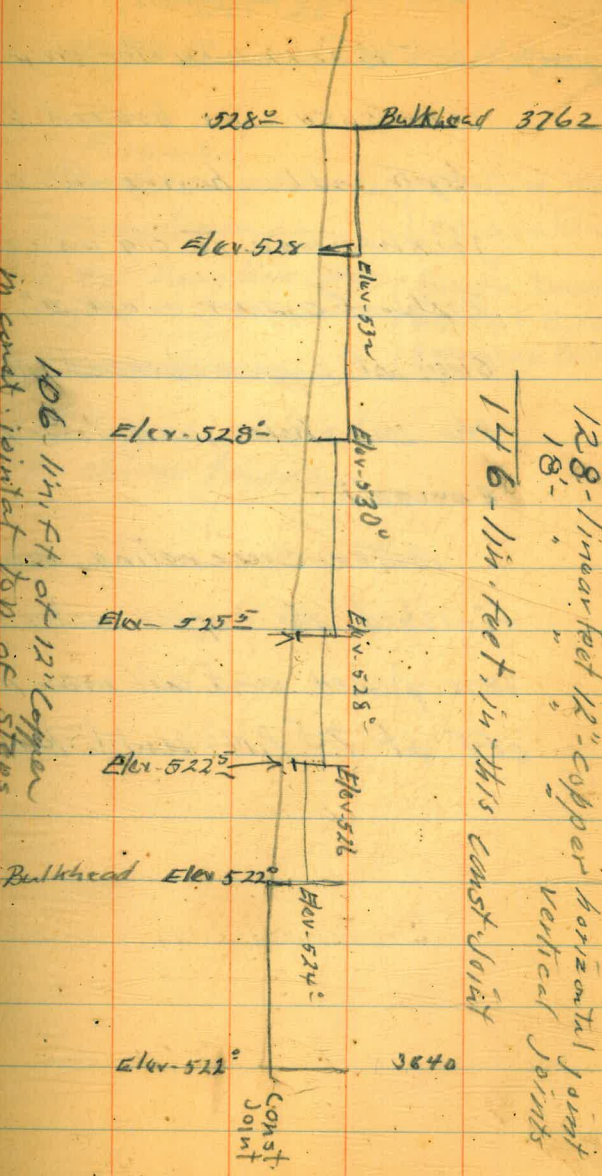 528º Bulkhead 3762
Elev-528
Elev-532
Elev-528º
Elev-530º
Elev-525⁵
Elev-528º
Elev-522⁵
Elev-526
Bulkhead Elev 522º
Elev-524º
Elev-522º 3840
Const. Joint
128-linear feet 12"-Copper horizontal joint
18'- " " " vertical joints
146-lin. feet. in this const. joint
106-lin. ft. of 12" Copper
in const. joint at top of steps